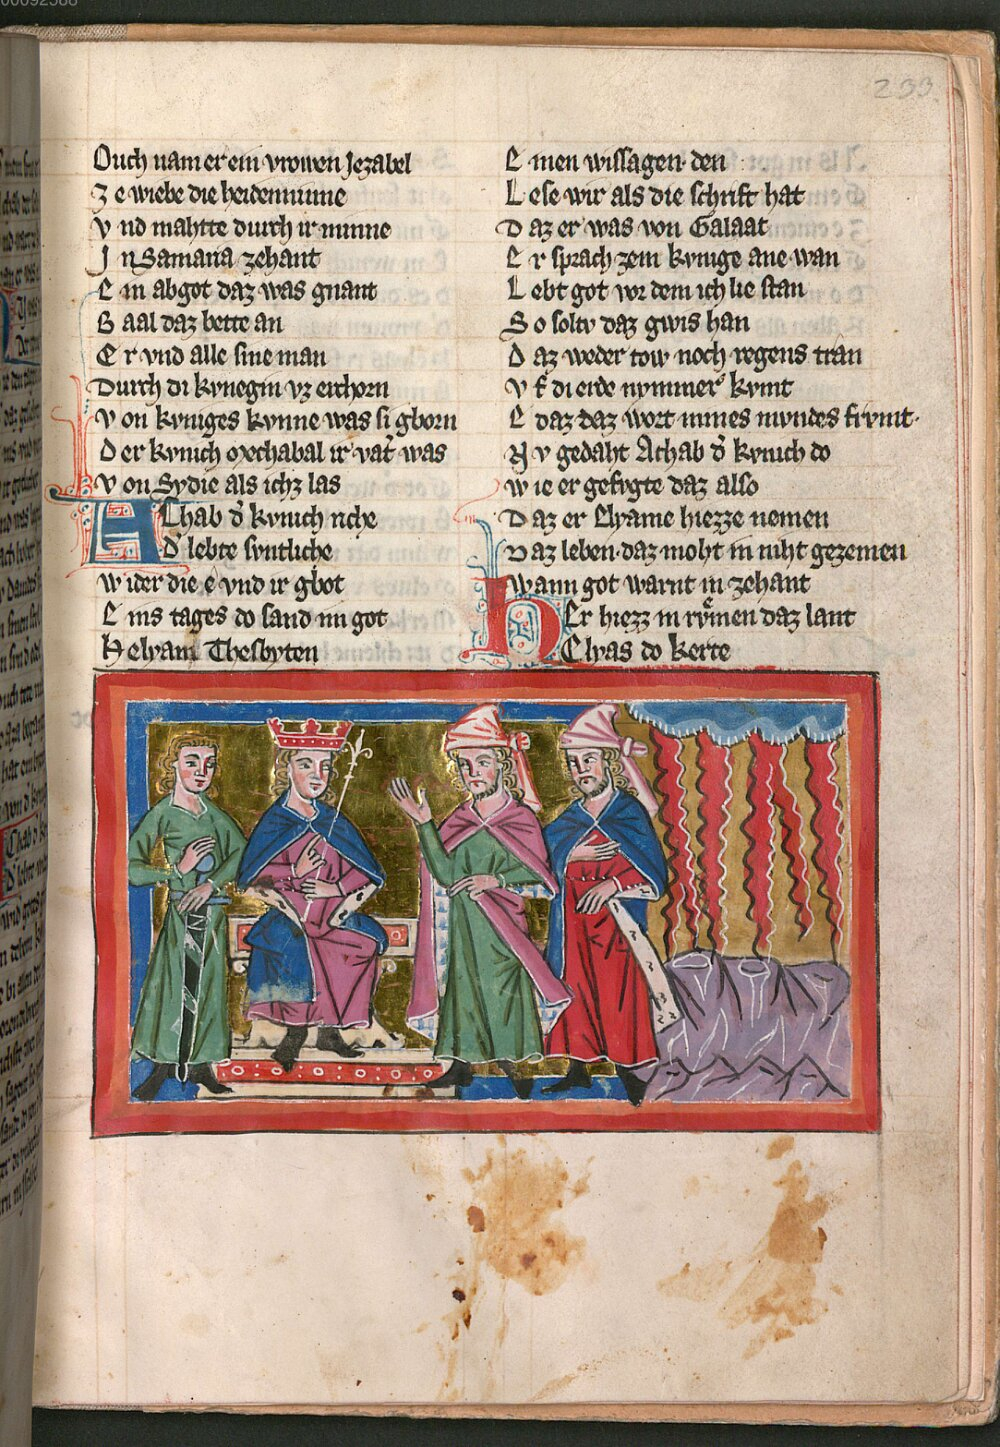 00092588
233
Ouch nam er ein vrowen Jezabel
Z e wiebe die heidenninne
V nd mahtte durch ir minne
J n Samaria zehant
E in abgot daz was gnant
B aal daz bette an
E r vnd alle sine man
Durch di kvnegin vz erchorn
V on kvniges kvnne was si gborn
D er kvnich oxchabal ir vat̾ was
V on Sydie als ichz las
AChab d̾ kvnich riche
D̾ lebte svntliche
W ider die e vnd ir gbot
E ins tages do sand im got
H elyam Thesbyten
E inen wissagen den
L ese wir als die schrift hat
D az er was von Galaat
E r sprach zem kvnige ane wan
L ebt got vor dem ich hie stan
S o soltv daz gwis han
D az weder tow noch regens tran
V f die erde nymmer kvmt
E daz daz wort mines mvndes frvmt
N v gedaht Achab d̾ kvnich do
W ie er gefvgte daz also
D az er Elyame hiezze nemen
D az leben daz moht in niht gezemen
Wann got warnt in zehant
HEr hiezz in rvmen daz lant
Elyas do kerte